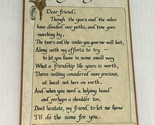 Dear friend,
Though the years and the miles
have divided our paths, and time goes
marching by,
The tears and the smiles you gave me well kept,
Along with my efforts to try
to let you know in some small way
What a friendship like yours is worth,
There's nothing considered more precious,
at least not here on this earth.
And when you need a helping hand
and perhaps a shoulder too,
Don't hesitate, my friend, to let me know
I'll do the same for you.